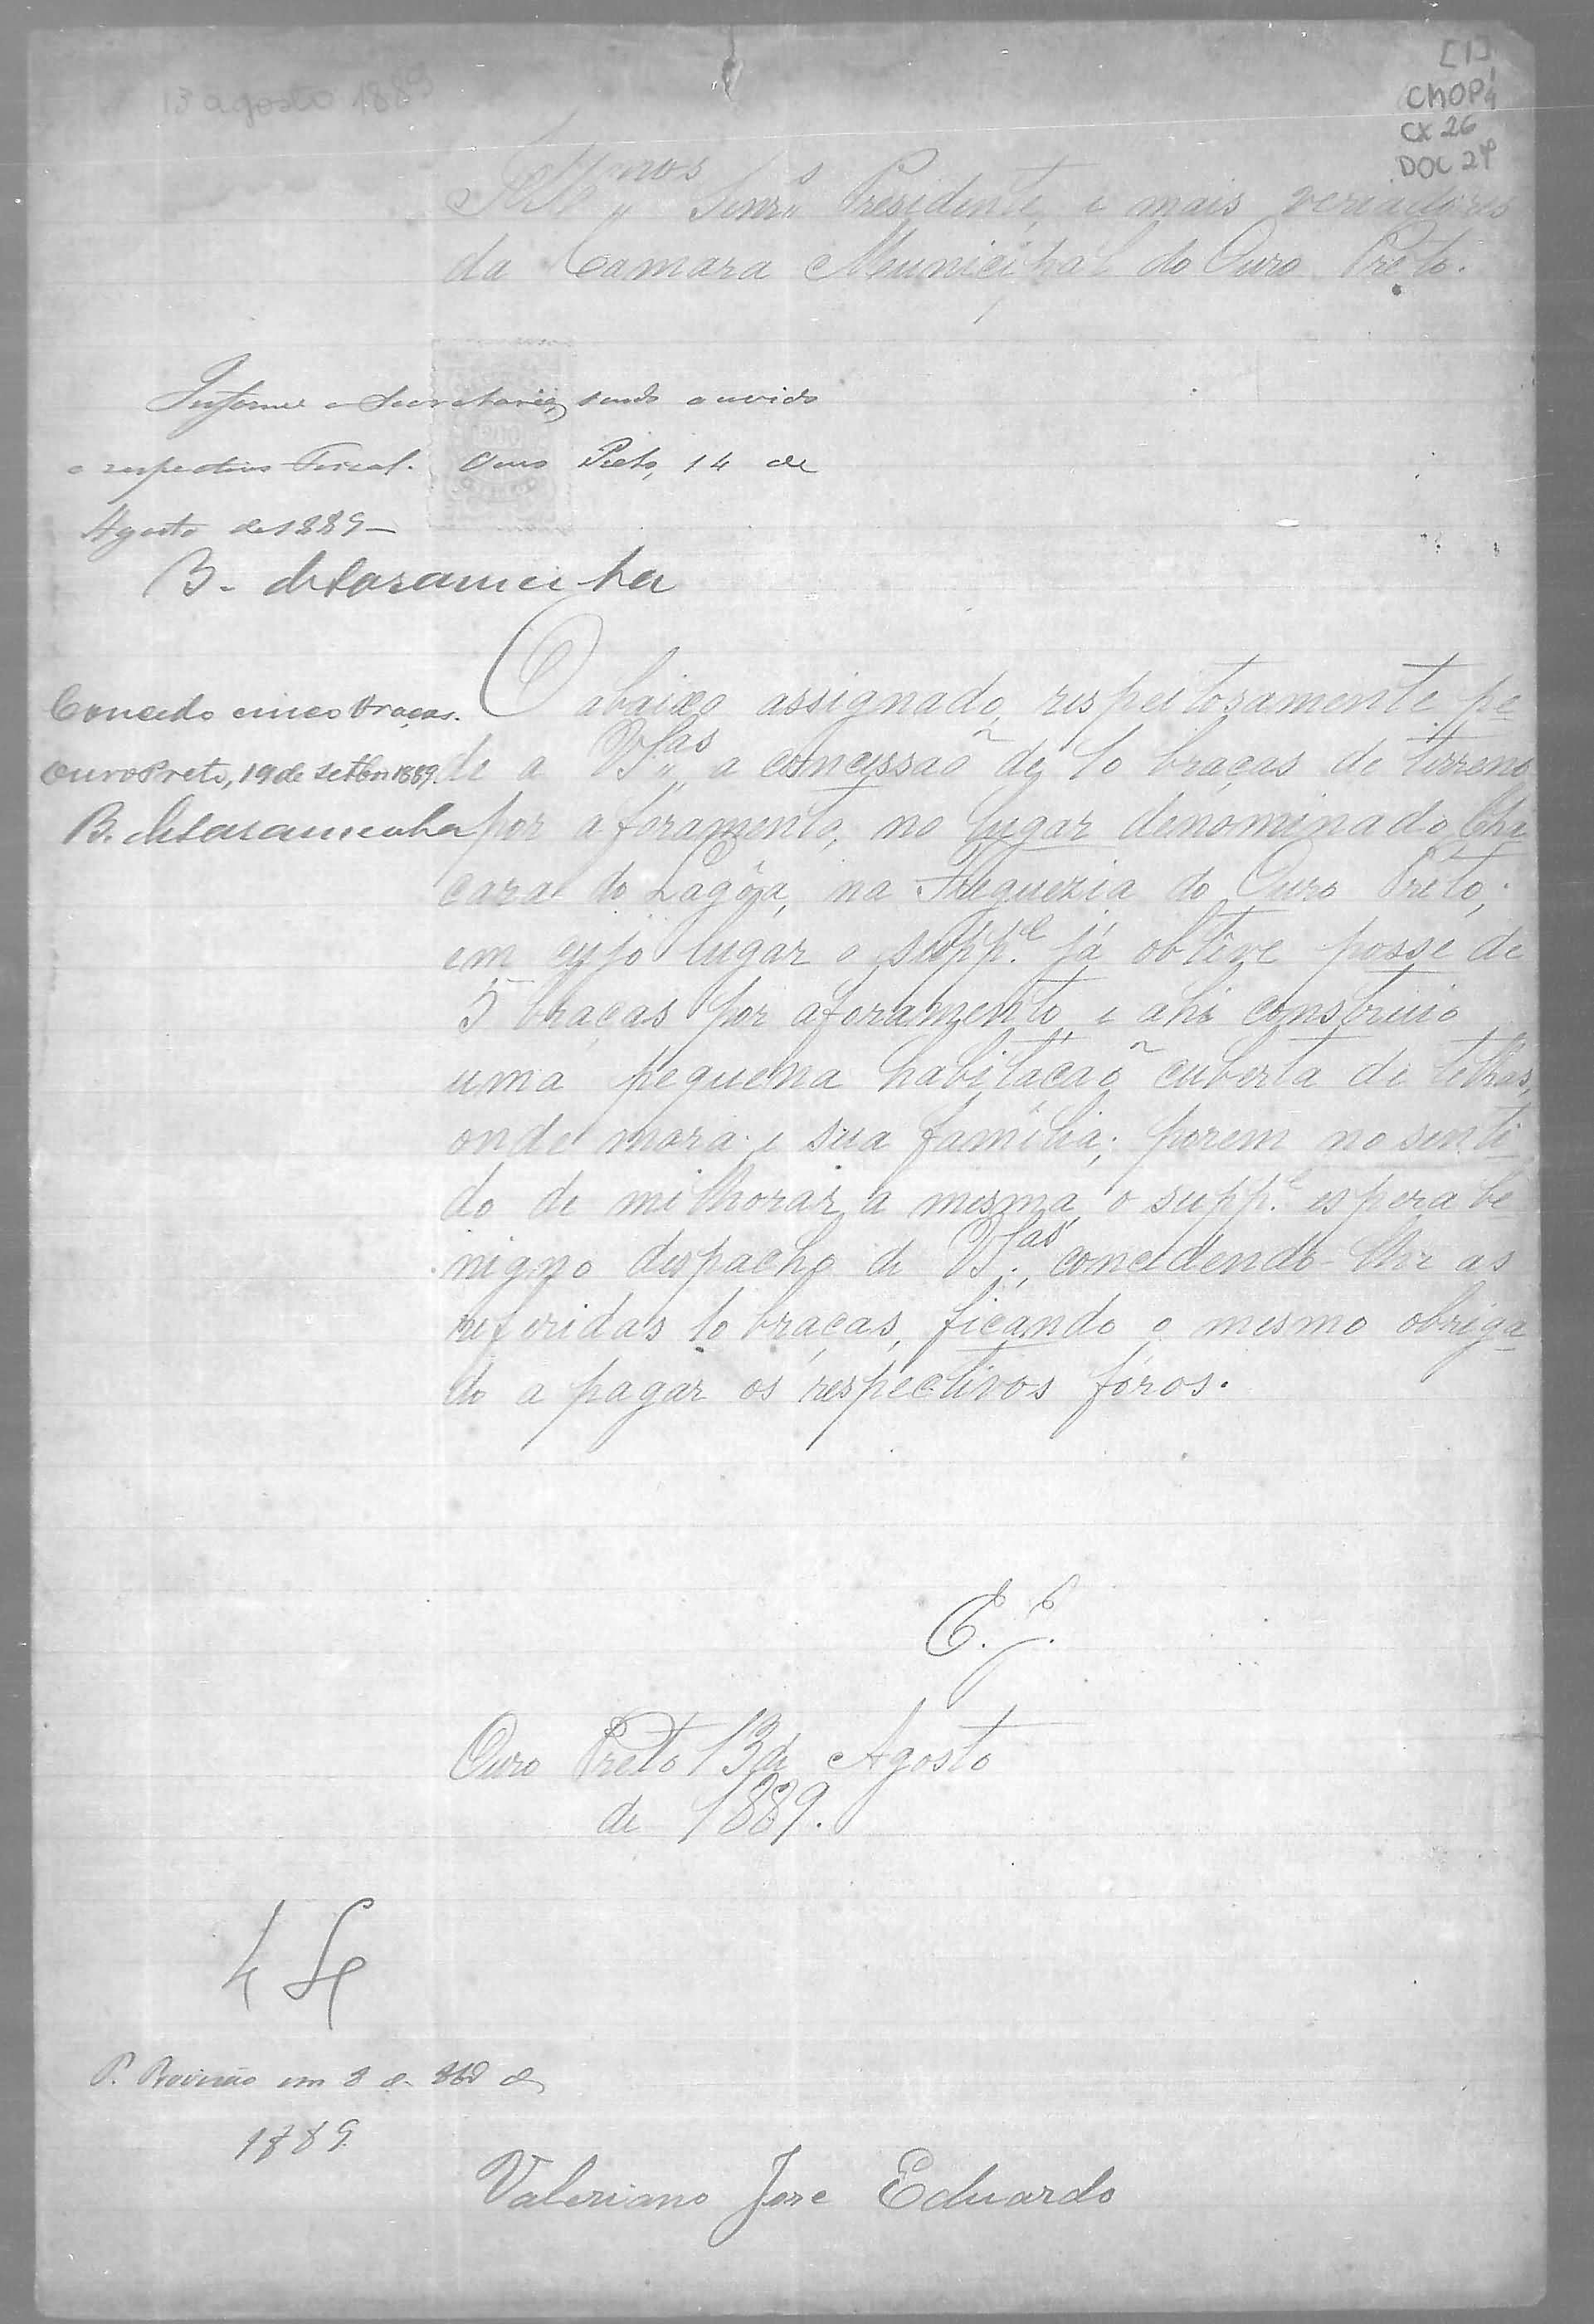 13 agosto 1889
[1]
CMOP
CX 26
DOC 24
Ill.mos Senr.s Presidente, e mais veriadores
da Camara Municipal do Ouro Preto.
Informe a Secretaria, sendo ouvido
o respectivo Fiscal. Ouro Preto, 14 de
Agosto de 1889 —
B. de Saramenha
Concedo cinco braças.
Ouro Preto, 19 de Setbro 1889.
B. de Saramenha
O abaixo assignado, respeitosamente pe-
de a VSas a concessaõ de 10 braças de terreno
por aforamento, no lugar denominado Cha-
cara do Lagôa, na Freguezia do Ouro Preto;
em cujo lugar o supp.e já obtive posse de
5 braças por aforamento, e ahi construio
uma pequena habitaçaõ cuberta de telhas,
onde mora e sua familia; porem no senti-
do de milhorar a mesma, o supp.e espera be-
nigno despacho de VSas, concedendo-lhe as
referidas 10 braças, ficando o mesmo obriga-
do a pagar os respectivos fóros.
Ouro Preto 13 de Agosto
de 1889.
P. Provisão em 8 de
1889
Valeriano Jose Eduardo